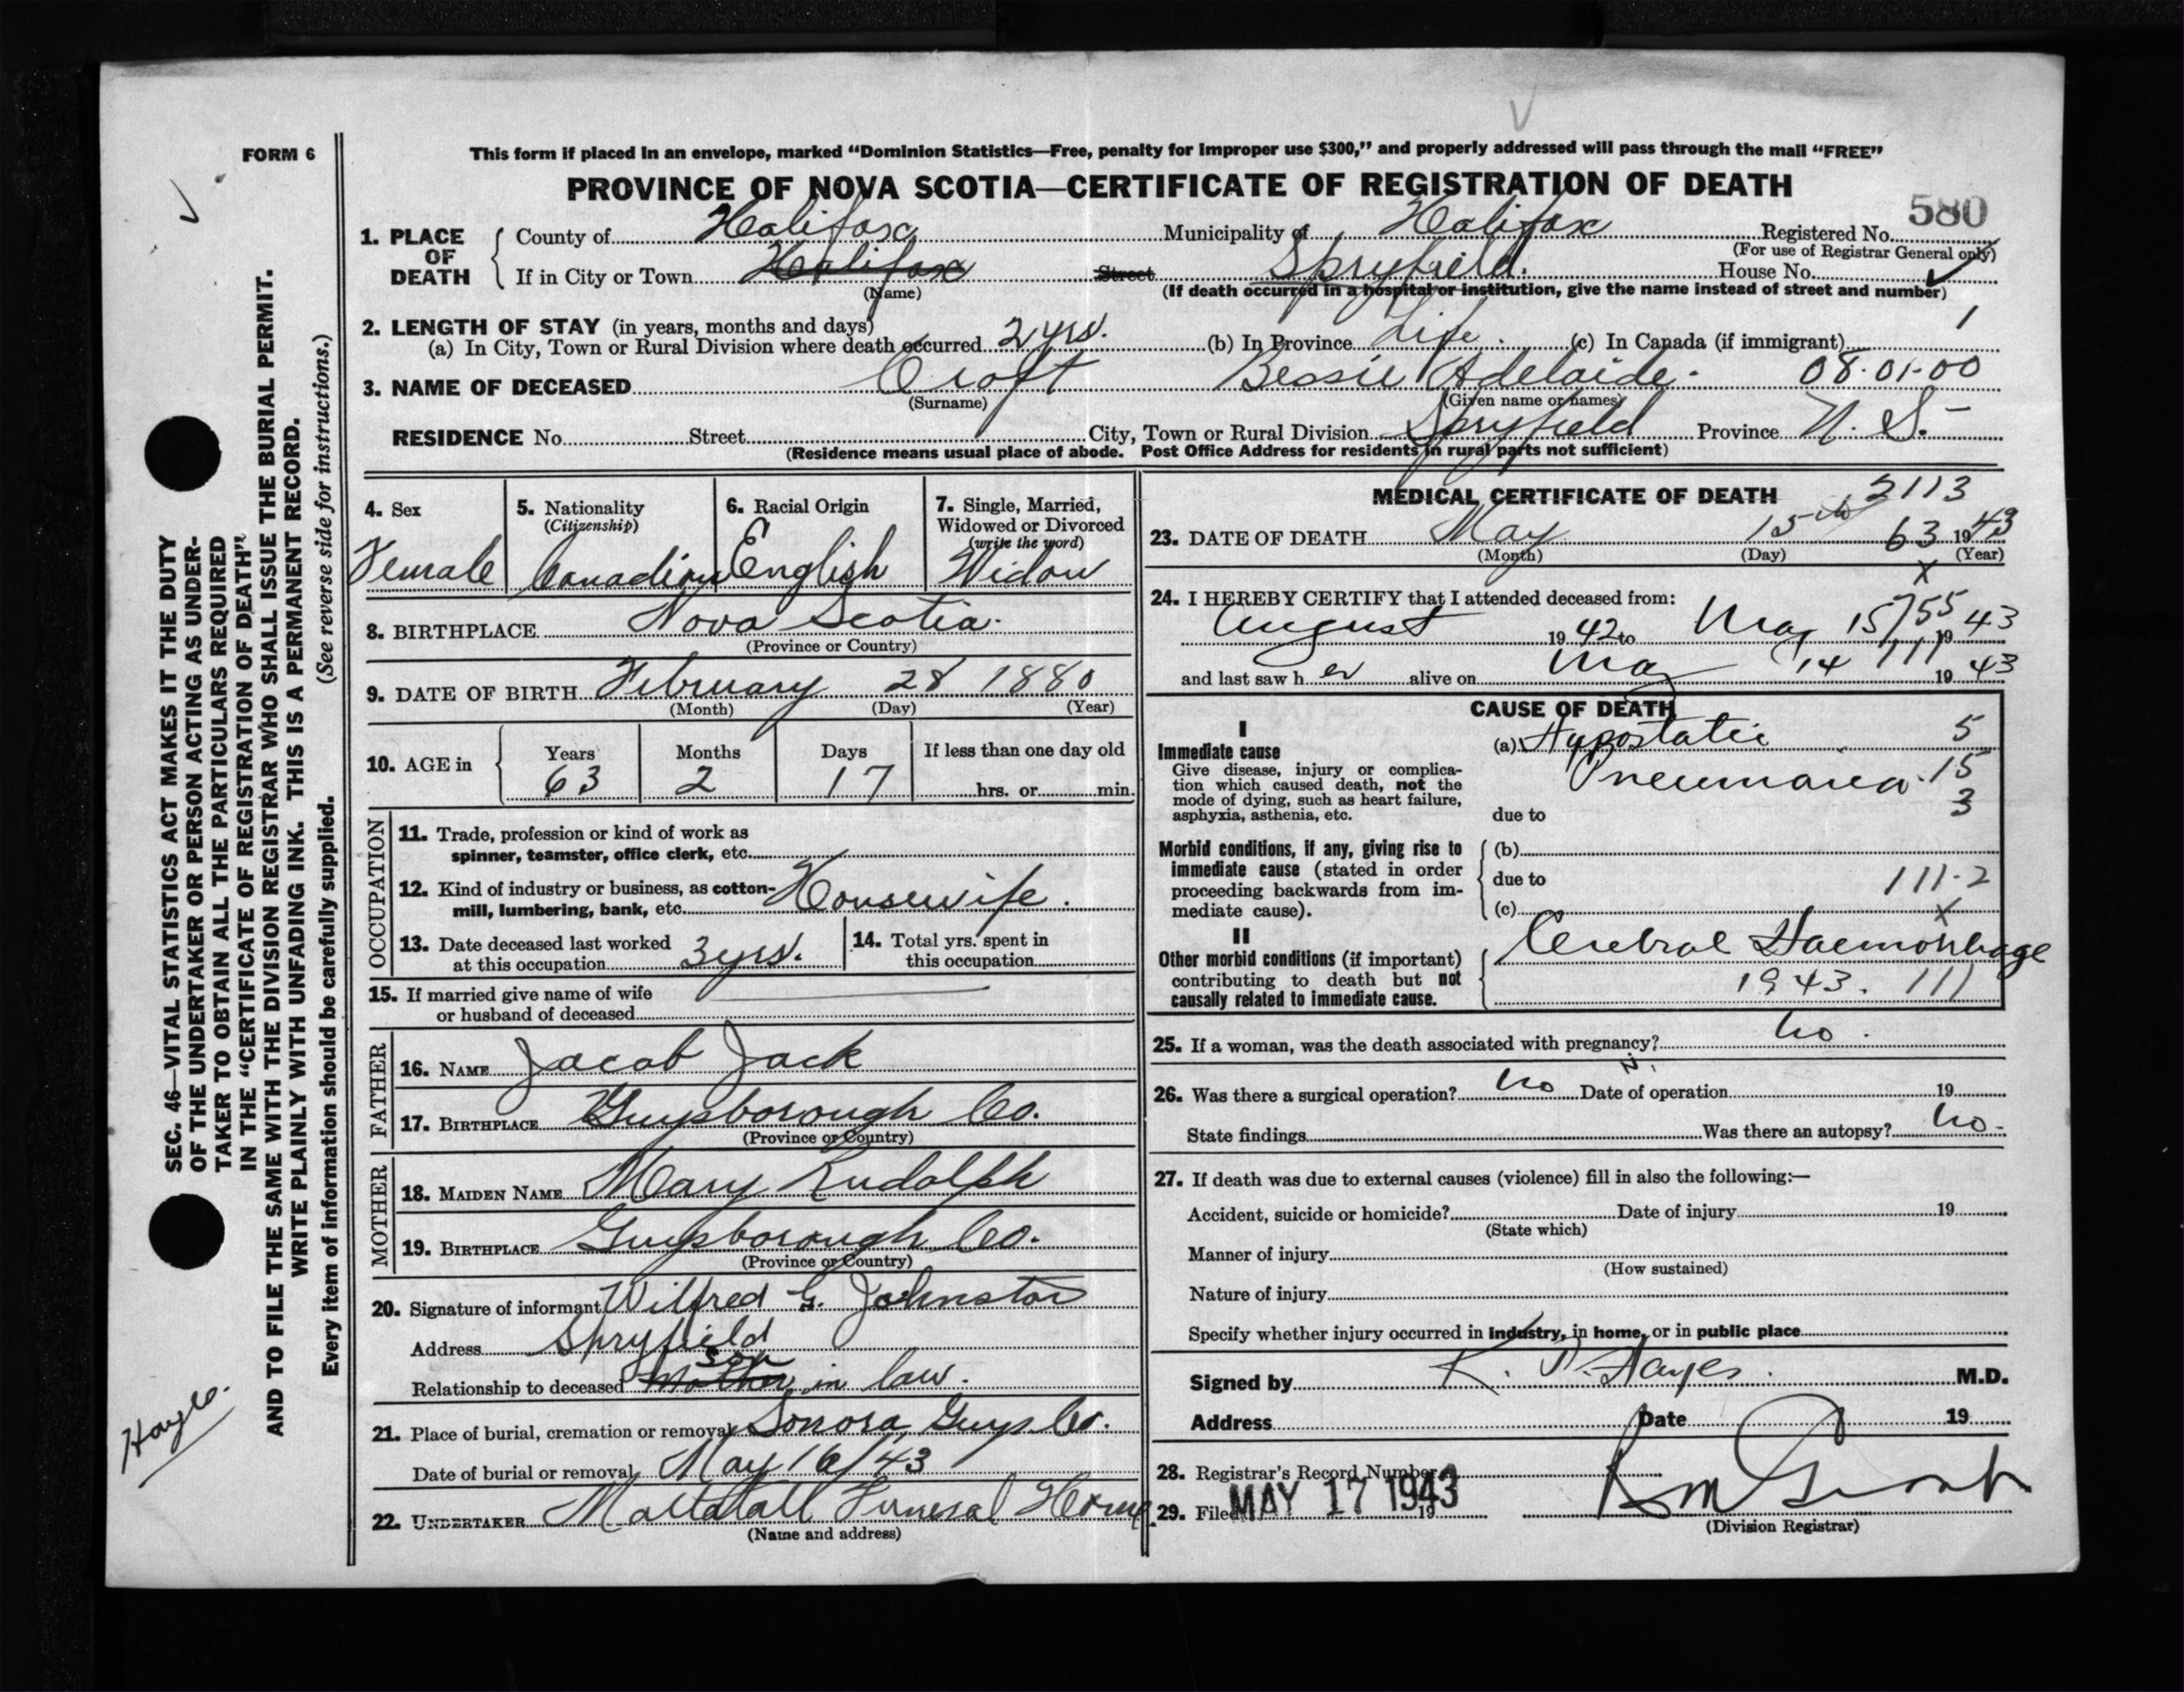 FORM 6
This form if placed in an envelope, marked “Dominion Statistics—Free, penalty for improper use $300,” and properly addressed will pass through the mail “FREE”
PROVINCE OF NOVA SCOTIA—CERTIFICATE OF REGISTRATION OF DEATH
580
1. PLACE OF DEATH
County of Halifax Municipality of Halifax Registered No.
(For use of Registrar General only)
If in City or Town Halifax Street Spryfield. House No.
(Name) (If death occurred in a hospital or institution, give the name instead of street and number)
2. LENGTH OF STAY (in years, months and days)
(a) In City, Town or Rural Division where death occurred 2 yrs. (b) In Province Life. (c) In Canada (if immigrant) 1
3. NAME OF DECEASED Croft Bessie Adelaide. 08-01-00
(Surname) (Given name or names)
RESIDENCE No. Street City, Town or Rural Division Spryfield Province N. S.
(Residence means usual place of abode. Post Office Address for residents in rural parts not sufficient)
4. Sex
Female
5. Nationality
(Citizenship)
Canadian
6. Racial Origin
English
7. Single, Married,
Widowed or Divorced
(write the word)
Widow
8. BIRTHPLACE Nova Scotia.
(Province or Country)
9. DATE OF BIRTH February 28 1880
(Month) (Day) (Year)
10. AGE in
Years Months Days If less than one day old
63 2 17 hrs. or min.
OCCUPATION
11. Trade, profession or kind of work as
spinner, teamster, office clerk, etc.
12. Kind of industry or business, as cotton-
mill, lumbering, bank, etc. Housewife.
13. Date deceased last worked
at this occupation 3 yrs.
14. Total yrs. spent in
this occupation
15. If married give name of wife
or husband of deceased
FATHER
16. NAME Jacob Jack
17. BIRTHPLACE Guysborough Co.
(Province or Country)
MOTHER
18. MAIDEN NAME Mary Rudolph
19. BIRTHPLACE Guysborough Co.
(Province or Country)
20. Signature of informant Wilfred G. Johnston
Address Spryfield
son
Relationship to deceased Mother in law.
21. Place of burial, cremation or removal Sonora, Guys. Co.
Date of burial or removal May 16/43
22. UNDERTAKER Mattatall Funeral Home
(Name and address)
MEDICAL CERTIFICATE OF DEATH
2113
23. DATE OF DEATH May 15th 63 1943
(Month) (Day) (Year)
x
24. I HEREBY CERTIFY that I attended deceased from:
755
August 1942 to May 15 1943
and last saw her alive on May 14 111 1943
CAUSE OF DEATH
I
Immediate cause
Give disease, injury or complica-
tion which caused death, not the
mode of dying, such as heart failure,
asphyxia, asthenia, etc.
(a) Hypostatic 5
Pneumonia. 15
3
due to
Morbid conditions, if any, giving rise to
immediate cause (stated in order
proceeding backwards from im-
mediate cause).
(b)
due to 111-2
(c) x
II
Other morbid conditions (if important)
contributing to death but not
causally related to immediate cause.
Cerebral Haemorrhage
1943. 111
25. If a woman, was the death associated with pregnancy? no.
26. Was there a surgical operation? no Date of operation 19
State findings Was there an autopsy? no.
27. If death was due to external causes (violence) fill in also the following:—
Accident, suicide or homicide? Date of injury 19
(State which)
Manner of injury
(How sustained)
Nature of injury
Specify whether injury occurred in industry, in home, or in public place
Signed by K. P. Hayes. M.D.
Address Date 19
28. Registrar's Record Number
29. Filed MAY 17 1943 19
(Division Registrar)
SEC. 46—VITAL STATISTICS ACT MAKES IT THE DUTY
OF THE UNDERTAKER OR PERSON ACTING AS UNDER-
TAKER TO OBTAIN ALL THE PARTICULARS REQUIRED
IN THE “CERTIFICATE OF REGISTRATION OF DEATH”
AND TO FILE THE SAME WITH THE DIVISION REGISTRAR WHO SHALL ISSUE THE BURIAL PERMIT.
WRITE PLAINLY WITH UNFADING INK. THIS IS A PERMANENT RECORD.
Every item of information should be carefully supplied. (See reverse side for instructions.)